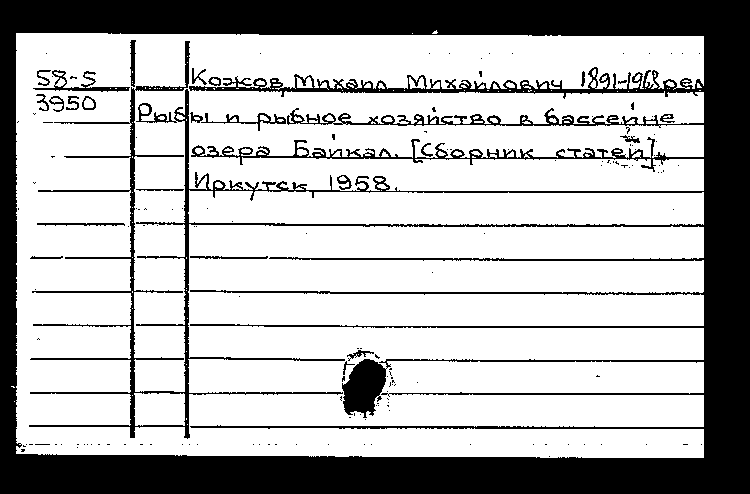 58-5 Кожов, Михаил Михайлович, 1891-1968 ред
3950 Рыбы и рыбное хозяйство в бассейне
озера Байкал. [Сборник статей].
Иркутск, 1958.